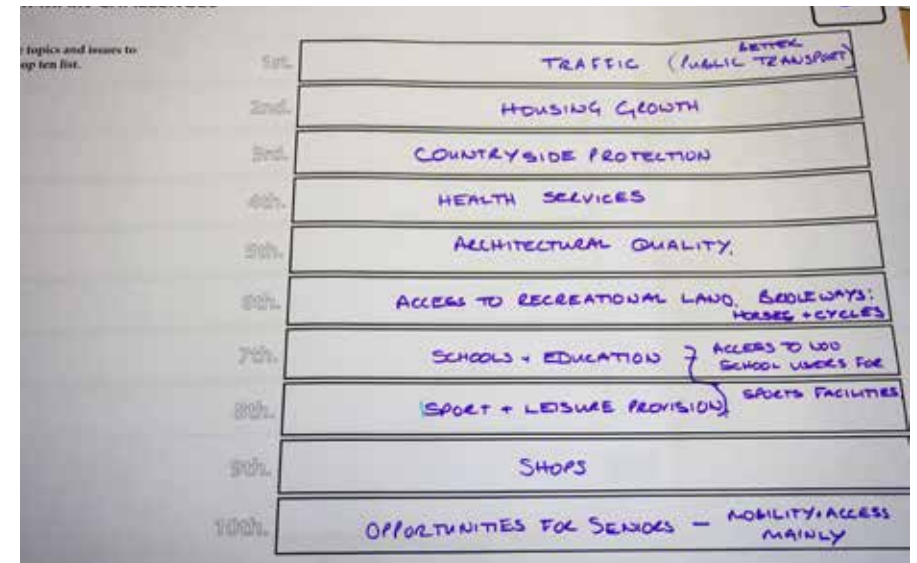 topics and issues to
op ten list.
1st. TRAFFIC (PUBLIC BETTER TRANSPORT)
2nd. HOUSING GROWTH
3rd. COUNTRYSIDE PROTECTION
4th. HEALTH SERVICES
5th. ARCHITECTURAL QUALITY.
6th. ACCESS TO RECREATIONAL LAND. BRIDLEWAYS:
HORSES + CYCLES
7th. SCHOOLS + EDUCATION } ACCESS TO
SCHOOL USERS FOR
8th. SPORT + LEISURE PROVISION } SPORTS FACILITIES
9th. SHOPS
10th. OPPORTUNITIES FOR SENIORS - MOBILITY + ACCESS
MAINLY